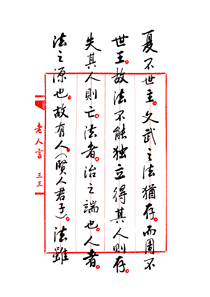 夏不世王。文武之法猶存。而周不
世王。故法不能獨立。得其人則存。
失其人則亡。法者。治之端也。人者。
法之源也。故有人(賢人君子)。法雖
老人言 三三